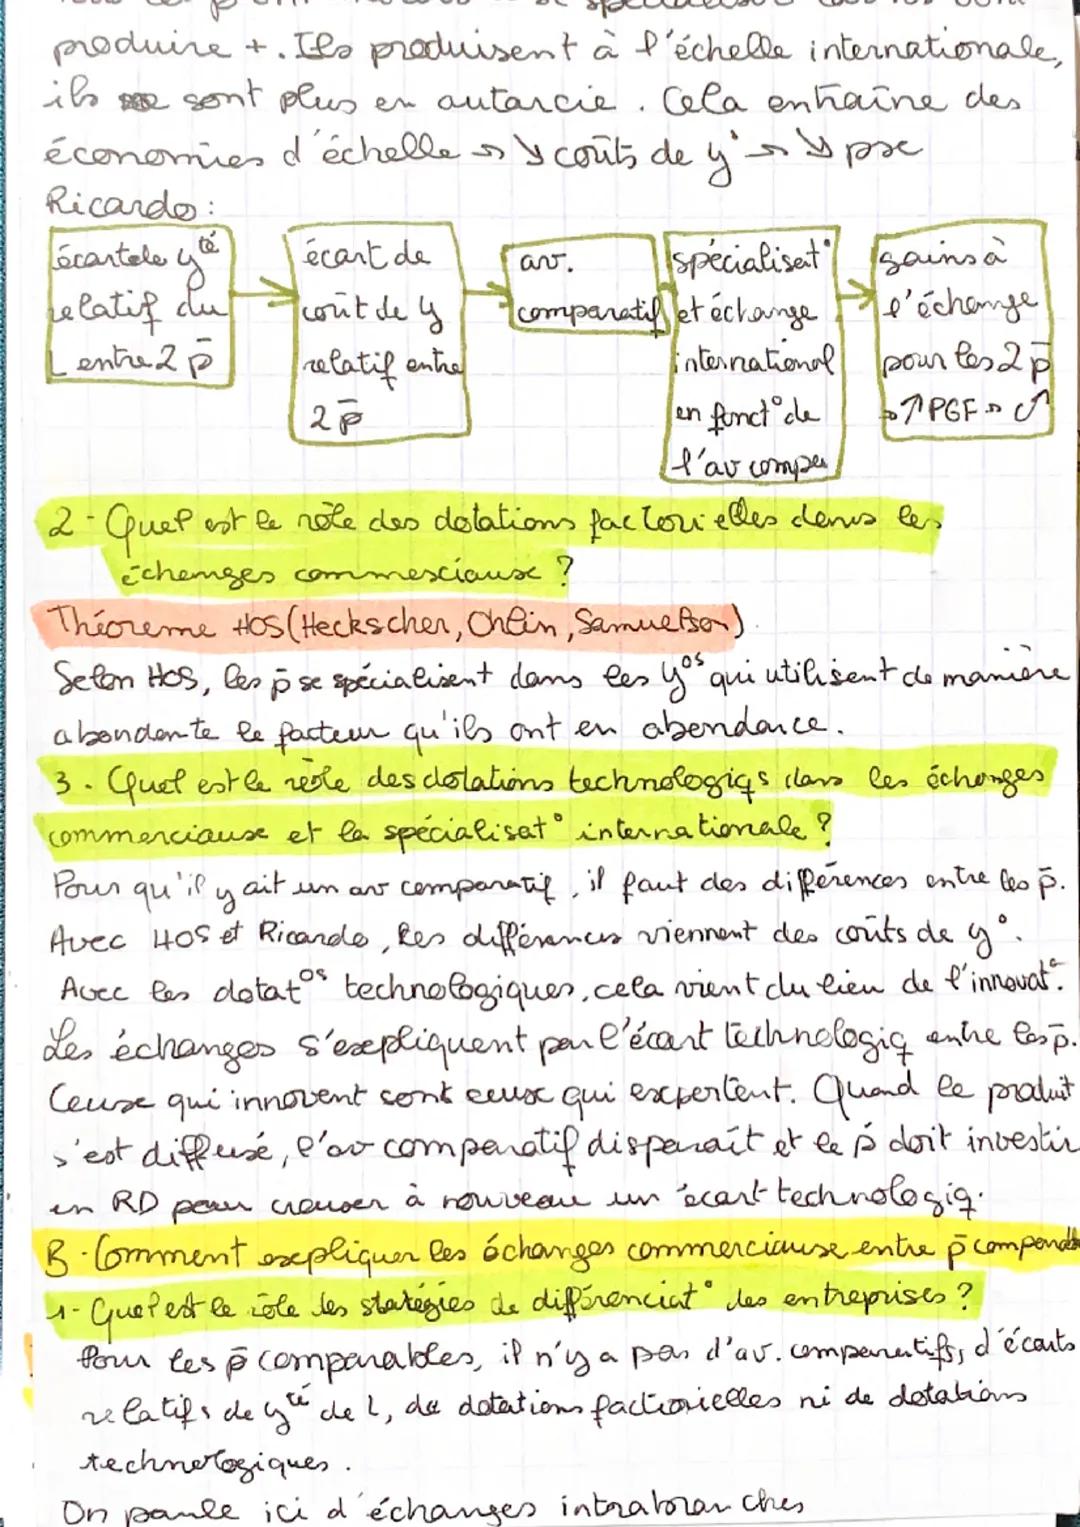 produire +. Ils produisent à l'échelle internationale,
ils ne sont plus en autarcie. Cela entraîne des
économies d'échelle ↘ coûts de y° ↘ px
Ricardo :
écart de yté
relatif du
L entre 2 p̄
écart de
coût de y
relatif entre
2 p̄
av.
comparatif
spécialisat°
et échange
international
en fonct° de
l'av compa
gains à
l'échange
pour les 2 p̄
↑ PGF
2 - Quel est le rôle des dotations factorielles dans les
échanges commerciaux ?
Théoreme HOS (Heckscher, Ohlin, Samuelson)
Selon HOS, les p̄ se spécialisent dans les yos qui utilisent de manière
abondante le facteur qu'ils ont en abondance.
3. Quel est le rôle des dotations technologiqs dans les échanges
commerciaux et la spécialisat° internationale ?
Pour qu'il y ait un av comparatif, il faut des différences entre les p̄.
Avec HOS et Ricardo, les différences viennent des coûts de y°.
Avec les dotatos technologiques, cela vient du lieu de l'innovat°.
Les échanges s'expliquent par l'écart technologiq entre les p̄.
Ceux qui innovent sont ceux qui exportent. Quand le produit
s'est diffusé, l'av comparatif disparaît et le p̄ doit investir
en RD pour creuser à nouveau un écart technologiq.
B - Comment expliquer les échanges commerciaux entre p̄ comparab
1 - Quel est le rôle des statégies de différenciat° des entreprises ?
Pour les p̄ comparables, il n'y a pas d'av. comparatifs, d'écarts
relatifs de yté de L, de dotations factiorielles ni de dotations
technologiques.
On parle ici d'échanges intrabranches